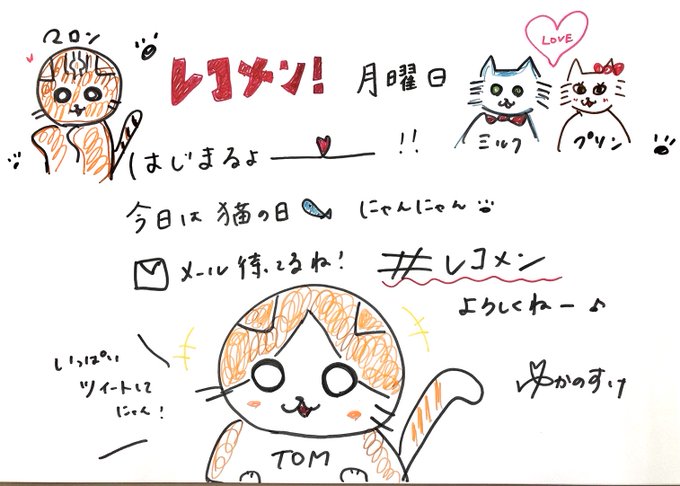 マロン
レコメン! 月曜日
LOVE
ミルク プリン
はじまるよー!!
今日は猫の日 にゃんにゃん
メール待ってるね! #レコメン
よろしくねー♪
いっぱい
ツイートして
にゃん!
かのすけ
TOM